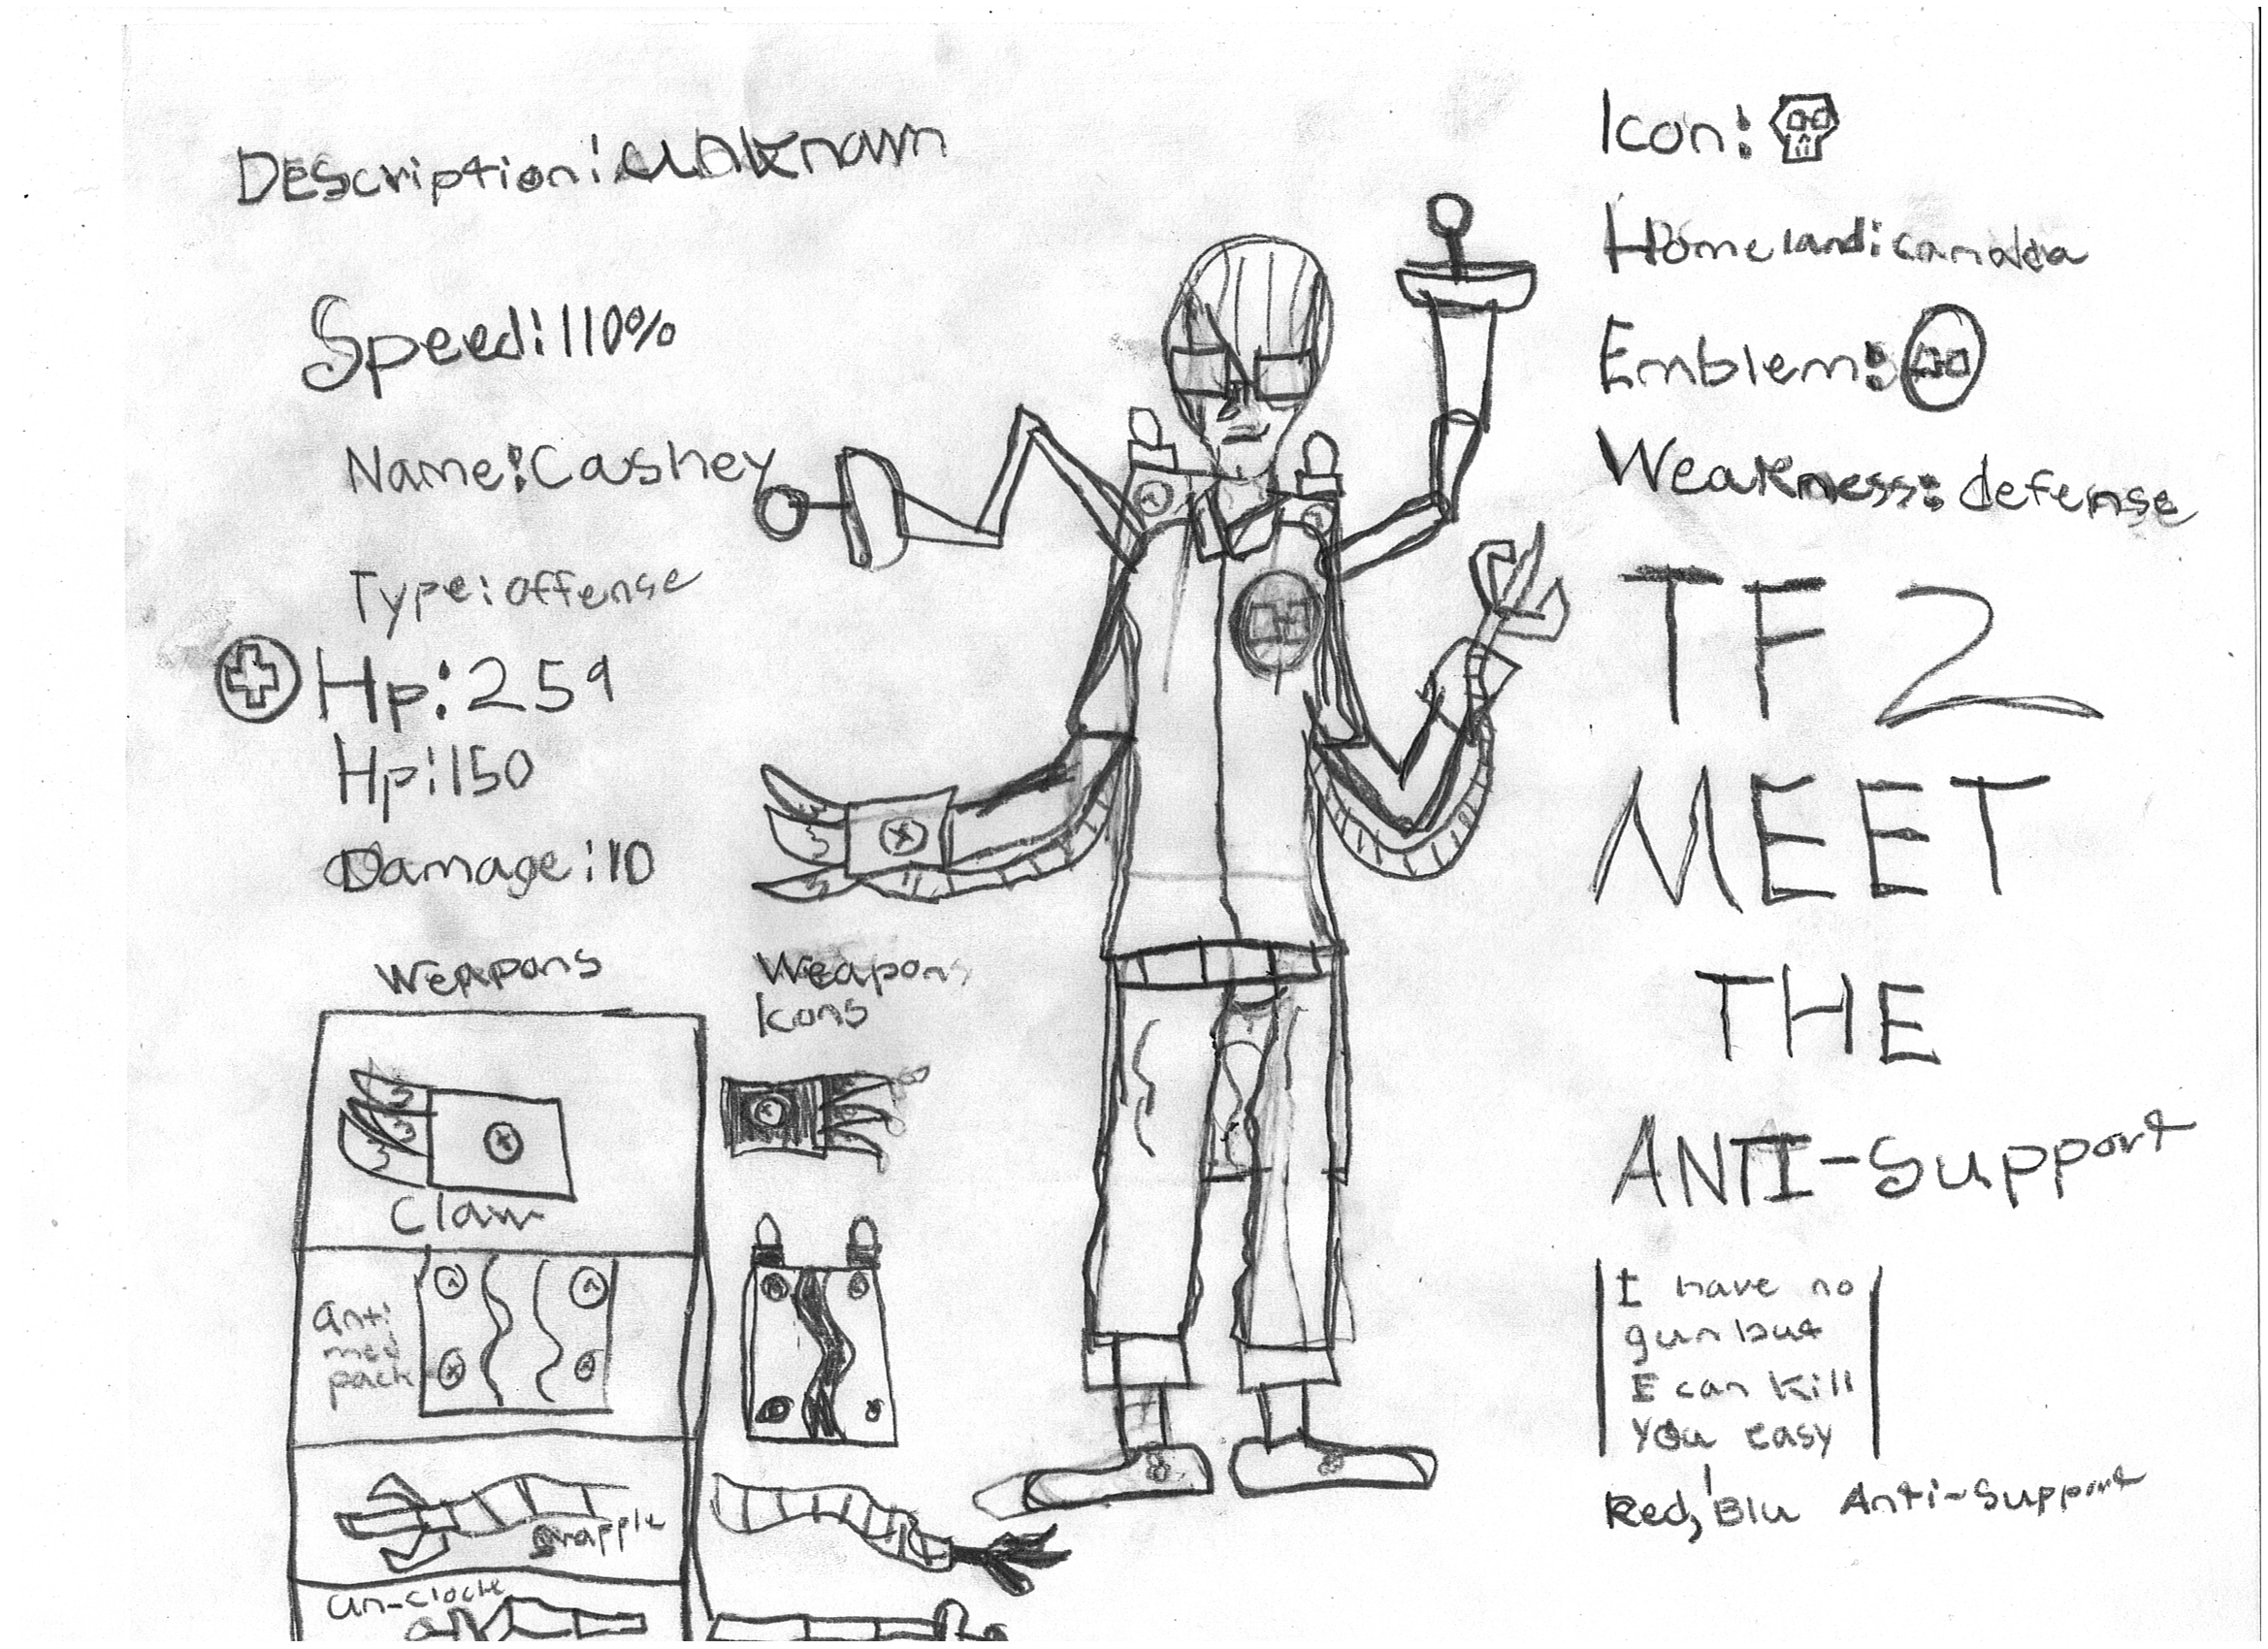 Description: Unknown
Speed: 110%
Name: Cashey
Type: offense
Hp: 259
Hp: 150
Damage: 10
Weapons
Claw
anti
med
pack
grapple
un-clock
Weapons
Icons
Icon:
Homeland: canada
Emblem:
Weakness: defense
TF2
MEET
THE
ANTI-Support
I have no
gun but
I can kill
you easy
Red, Blu Anti-Support